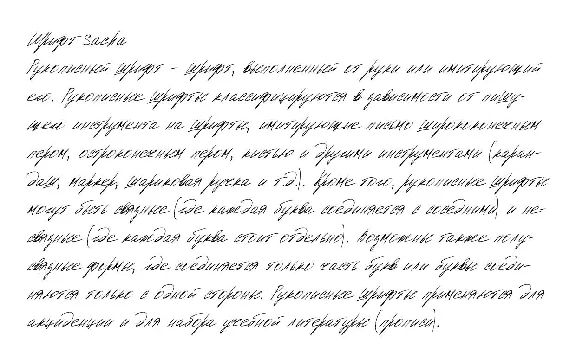 Шрифт Sacha
Рукописный шрифт – шрифт, выполненный от руки или имитирующий
его. Рукописные шрифты классифицируются в зависимости от пишу-
щего инструмента на шрифты, имитирующие письмо ширококонечным
пером, остроконечным пером, кистью и другими инструментами (каран-
даш, маркер, шариковая ручка и т.д.). Кроме того, рукописные шрифты
могут быть связные (где каждая буква соединяется с соседними) и не-
связные (где каждая буква стоит отдельно). Возможны также полу-
связные формы, где соединяется только часть букв или буквы соеди-
няются только с одной стороны. Рукописные шрифты применяются для
акциденции и для набора учебной литературы (прописи).